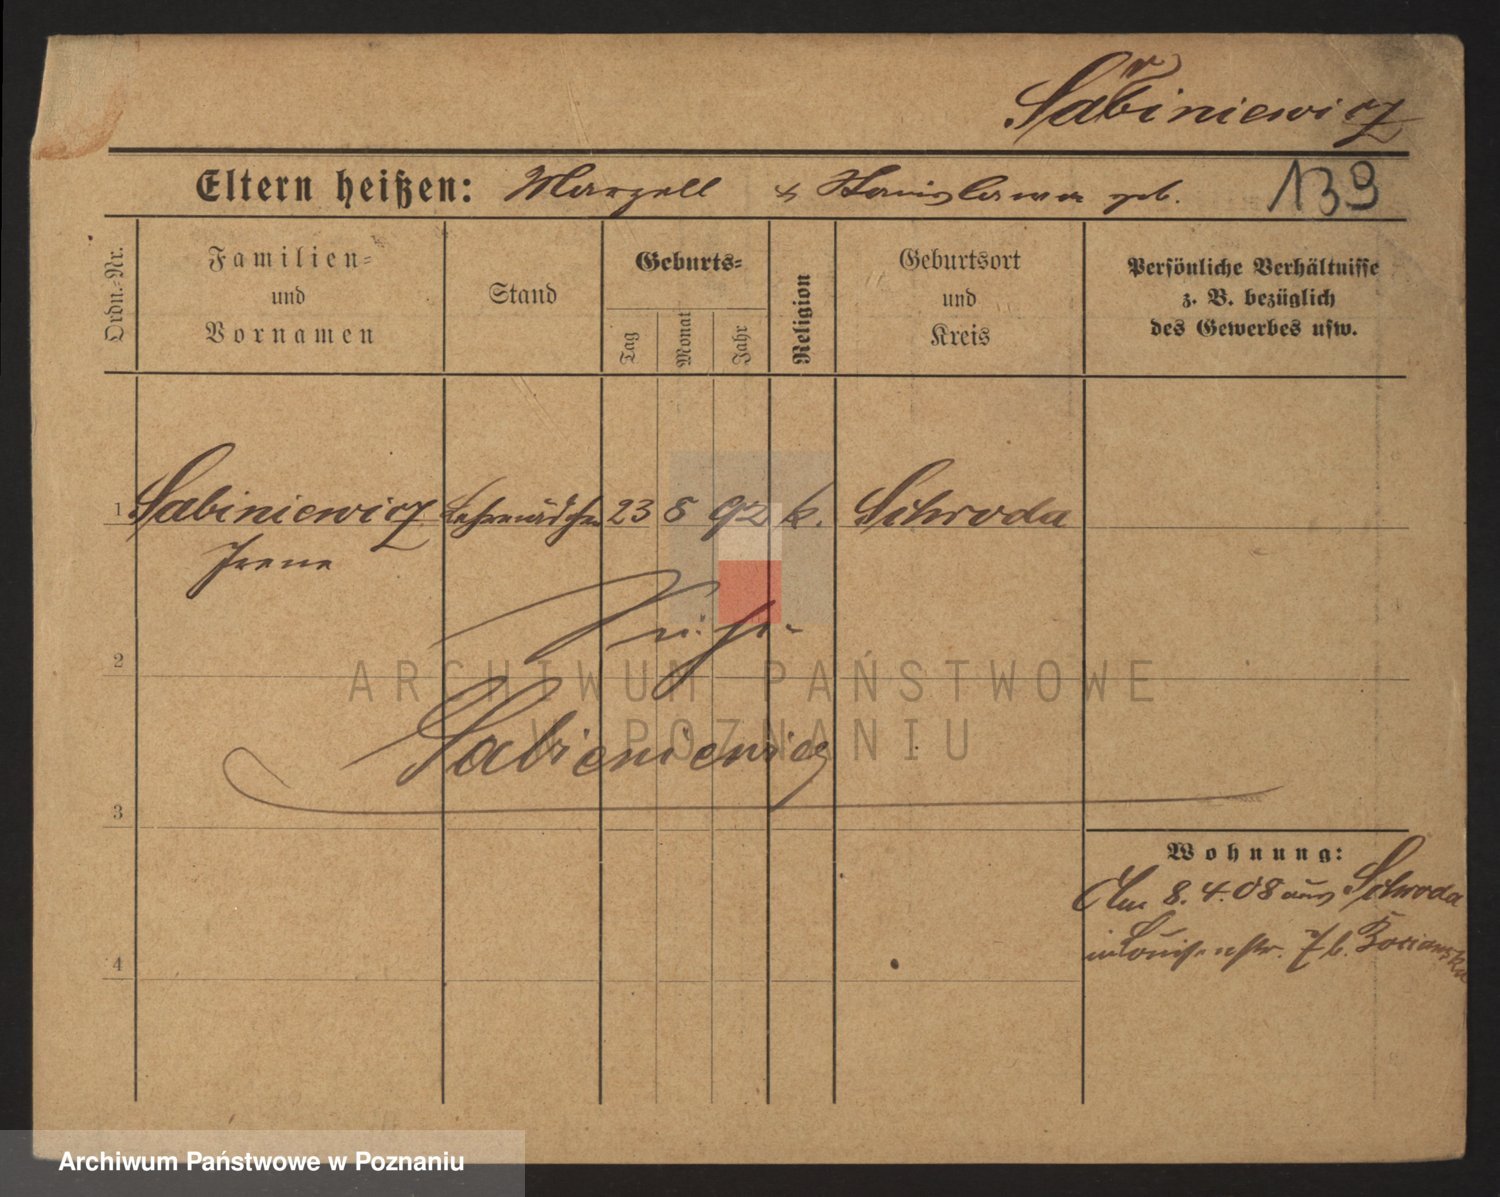 Sabiniewicz
Eltern heißen: Marzell & Stanislawa geb. 139
Ordn.-Nr.
Familien-
und
Vornamen
Stand
Geburts-
Tag
Monat
Jahr
Religion
Geburtsort
und
Kreis
Persönliche Verhältnisse
z. B. bezüglich
des Gewerbes usw.
1 Sabiniewicz Lehrmädchen 23 8 92 k. Schroda
Irene
2
Sabieniewicz
3
Wohnung:
Am 8.4.08 aus Schroda
in Louisenstr. 7 b.
4
ARCHIWUM PAŃSTWOWE
W POZNANIU
Archiwum Państwowe w Poznaniu